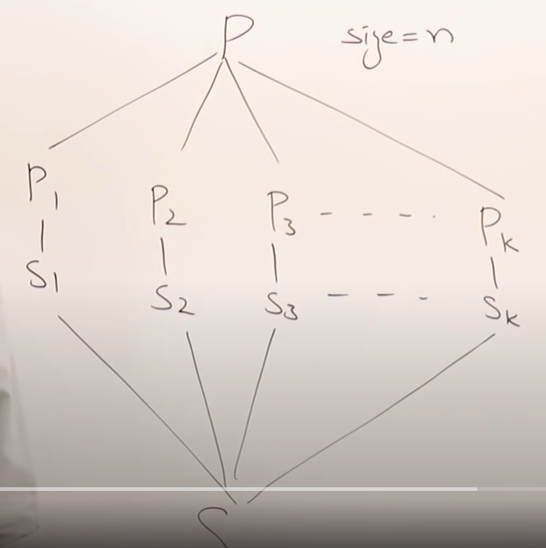 P size=n
P1 P2 P3 - - - . Pk
S1 S2 S3 - - - Sk
S